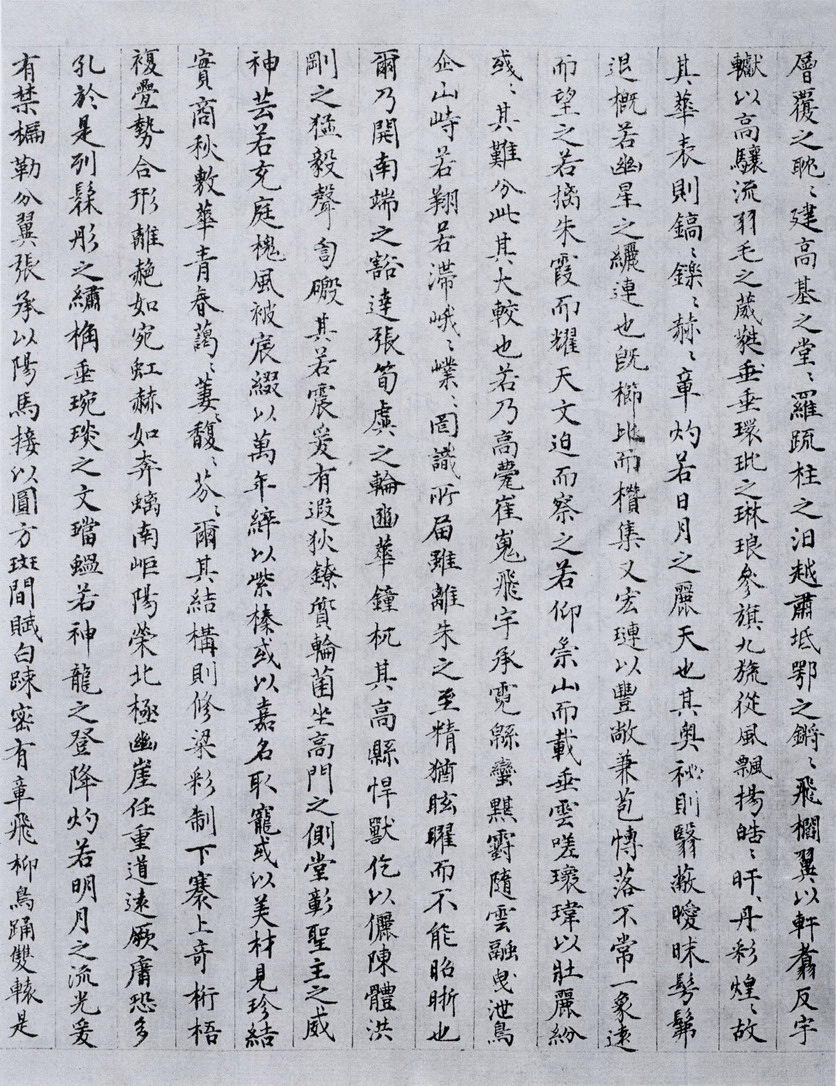 層覆之耽〻建高基之堂〻羅疏柱之汩越肅坻鄂之鏘〻飛櫩翼以軒翥反宇
轍以高驤流羽毛之葳蕤垂垂環玭之琳琅參旗九旒從風飄揚皓〻旰〻丹彩煌〻故
其華表則鎬〻鑠〻赫〻章灼若日月之麗天也其奧秘則翳蔽曖昧髣髴
退概若幽星之纚連也既櫛比而欑集又宏璉以豐敞兼苞博落不常一象遠
而望之若摛朱霞而耀天文迫而察之若仰崇山而載垂雲嗟瓌瑋以壯麗紛
彧〻其難分此其大較也若乃高甍崔嵬飛宇承霓緜蠻黮䨴隨雲融曳泄鳥
企山峙若翔若滯峨〻嶫〻罔識所屆雖離朱之至精猶眩曜而不能昭晰也
爾乃開南端之豁達張筍虡之輪豳華鐘杌其高縣悍獸仡以儷陳體洪
剛之猛毅聲訇磤其若震爰有遐狄鐐質輪菌坐高門之側堂彰聖主之威
神芸若充庭槐風被宸綴以萬年綷以紫榛或以嘉名取寵或以美材見珍結
實商秋敷華青春藹〻萋〻馥〻芬〻爾其結構則修梁彩制下褰上奇桁梧
複疊勢合形離赩如宛虹赫如奔螭南岠陽榮北極幽崖任重道遠厥庸恐多
孔於是列髹彤之繡桷垂琬琰之文璫蝹若神龍之登降灼若明月之流光爰
有禁楄勒分翼張承以陽馬接以圓方斑間賦白踈密有章飛柳鳥踊雙轅是